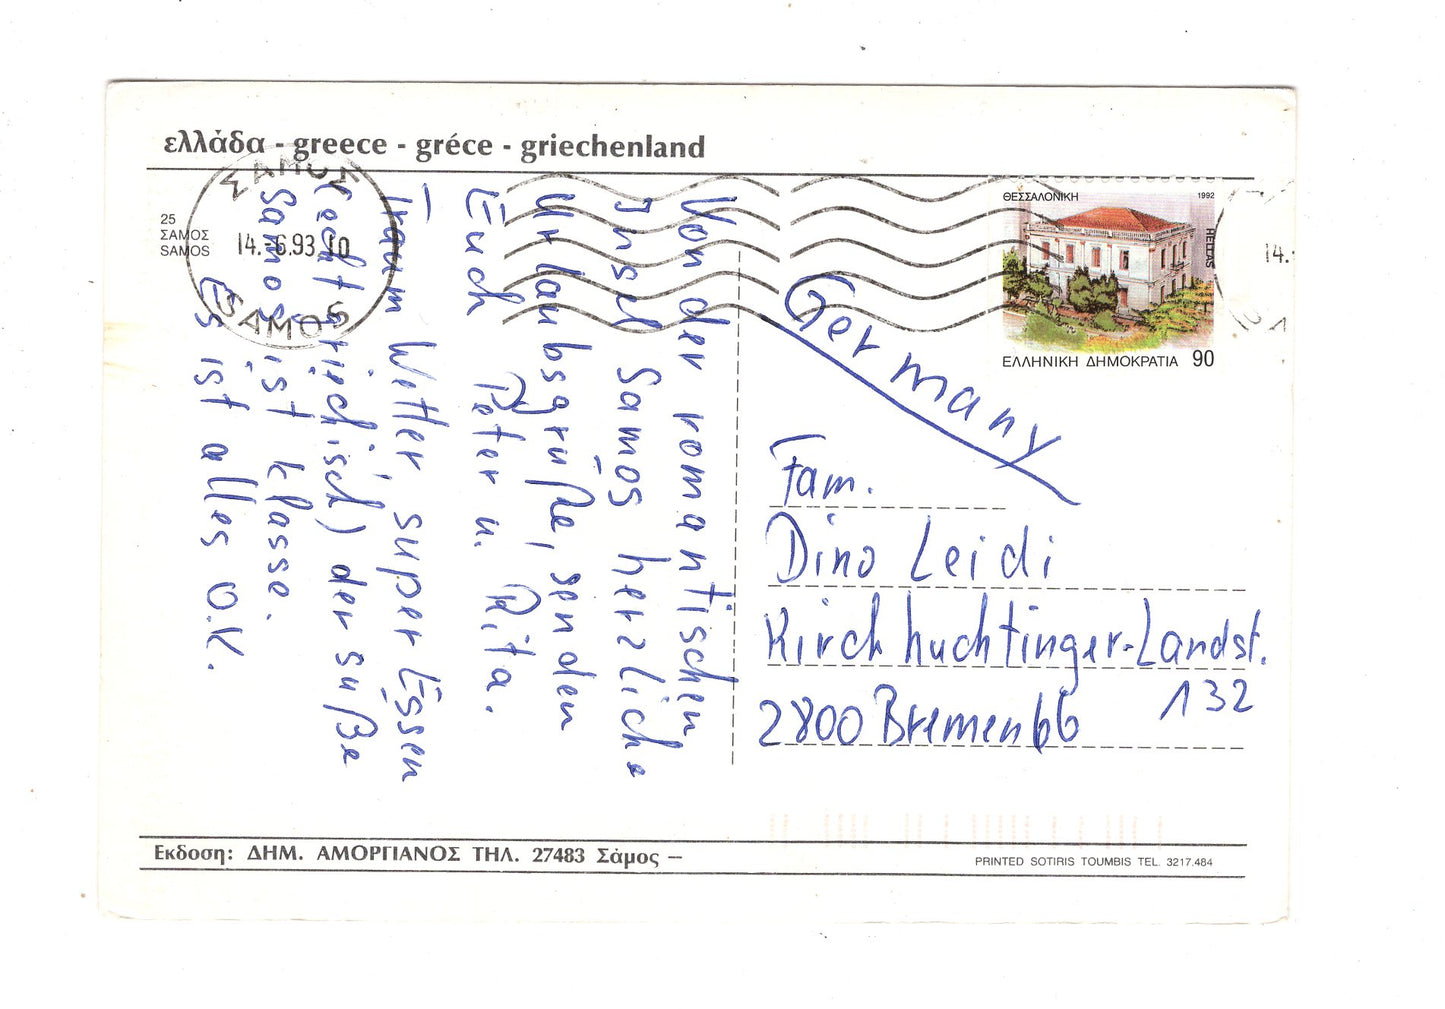 ελλάδα - greece - gréce - griechenland
25
ΣΑΜΟΣ
SAMOS
ΣΑΜΟΣ
14.-6.93.10
SAMOS
ΘΕΣΣΑΛΟΝΙΚΗ
1992
HELLAS
ΕΛΛΗΝΙΚΗ ΔΗΜΟΚΡΑΤΙΑ 90
14.-
Von der romantischen
Insel Samos herzliche
Urlaubsgrüße, senden
Euch Peter u. Rita.
Traum Wetter, super Essen
(echt griechisch) der süße
Samos ist klasse.
Es ist alles O.K.
Germany
Fam.
Dino Leidi
Kirchhuchtinger-Landst.
132
2800 Bremen 66
Εκδοση: ΔΗΜ. ΑΜΟΡΓΙΑΝΟΣ ΤΗΛ. 27483 Σάμος –
PRINTED SOTIRIS TOUMBIS TEL. 3217.484